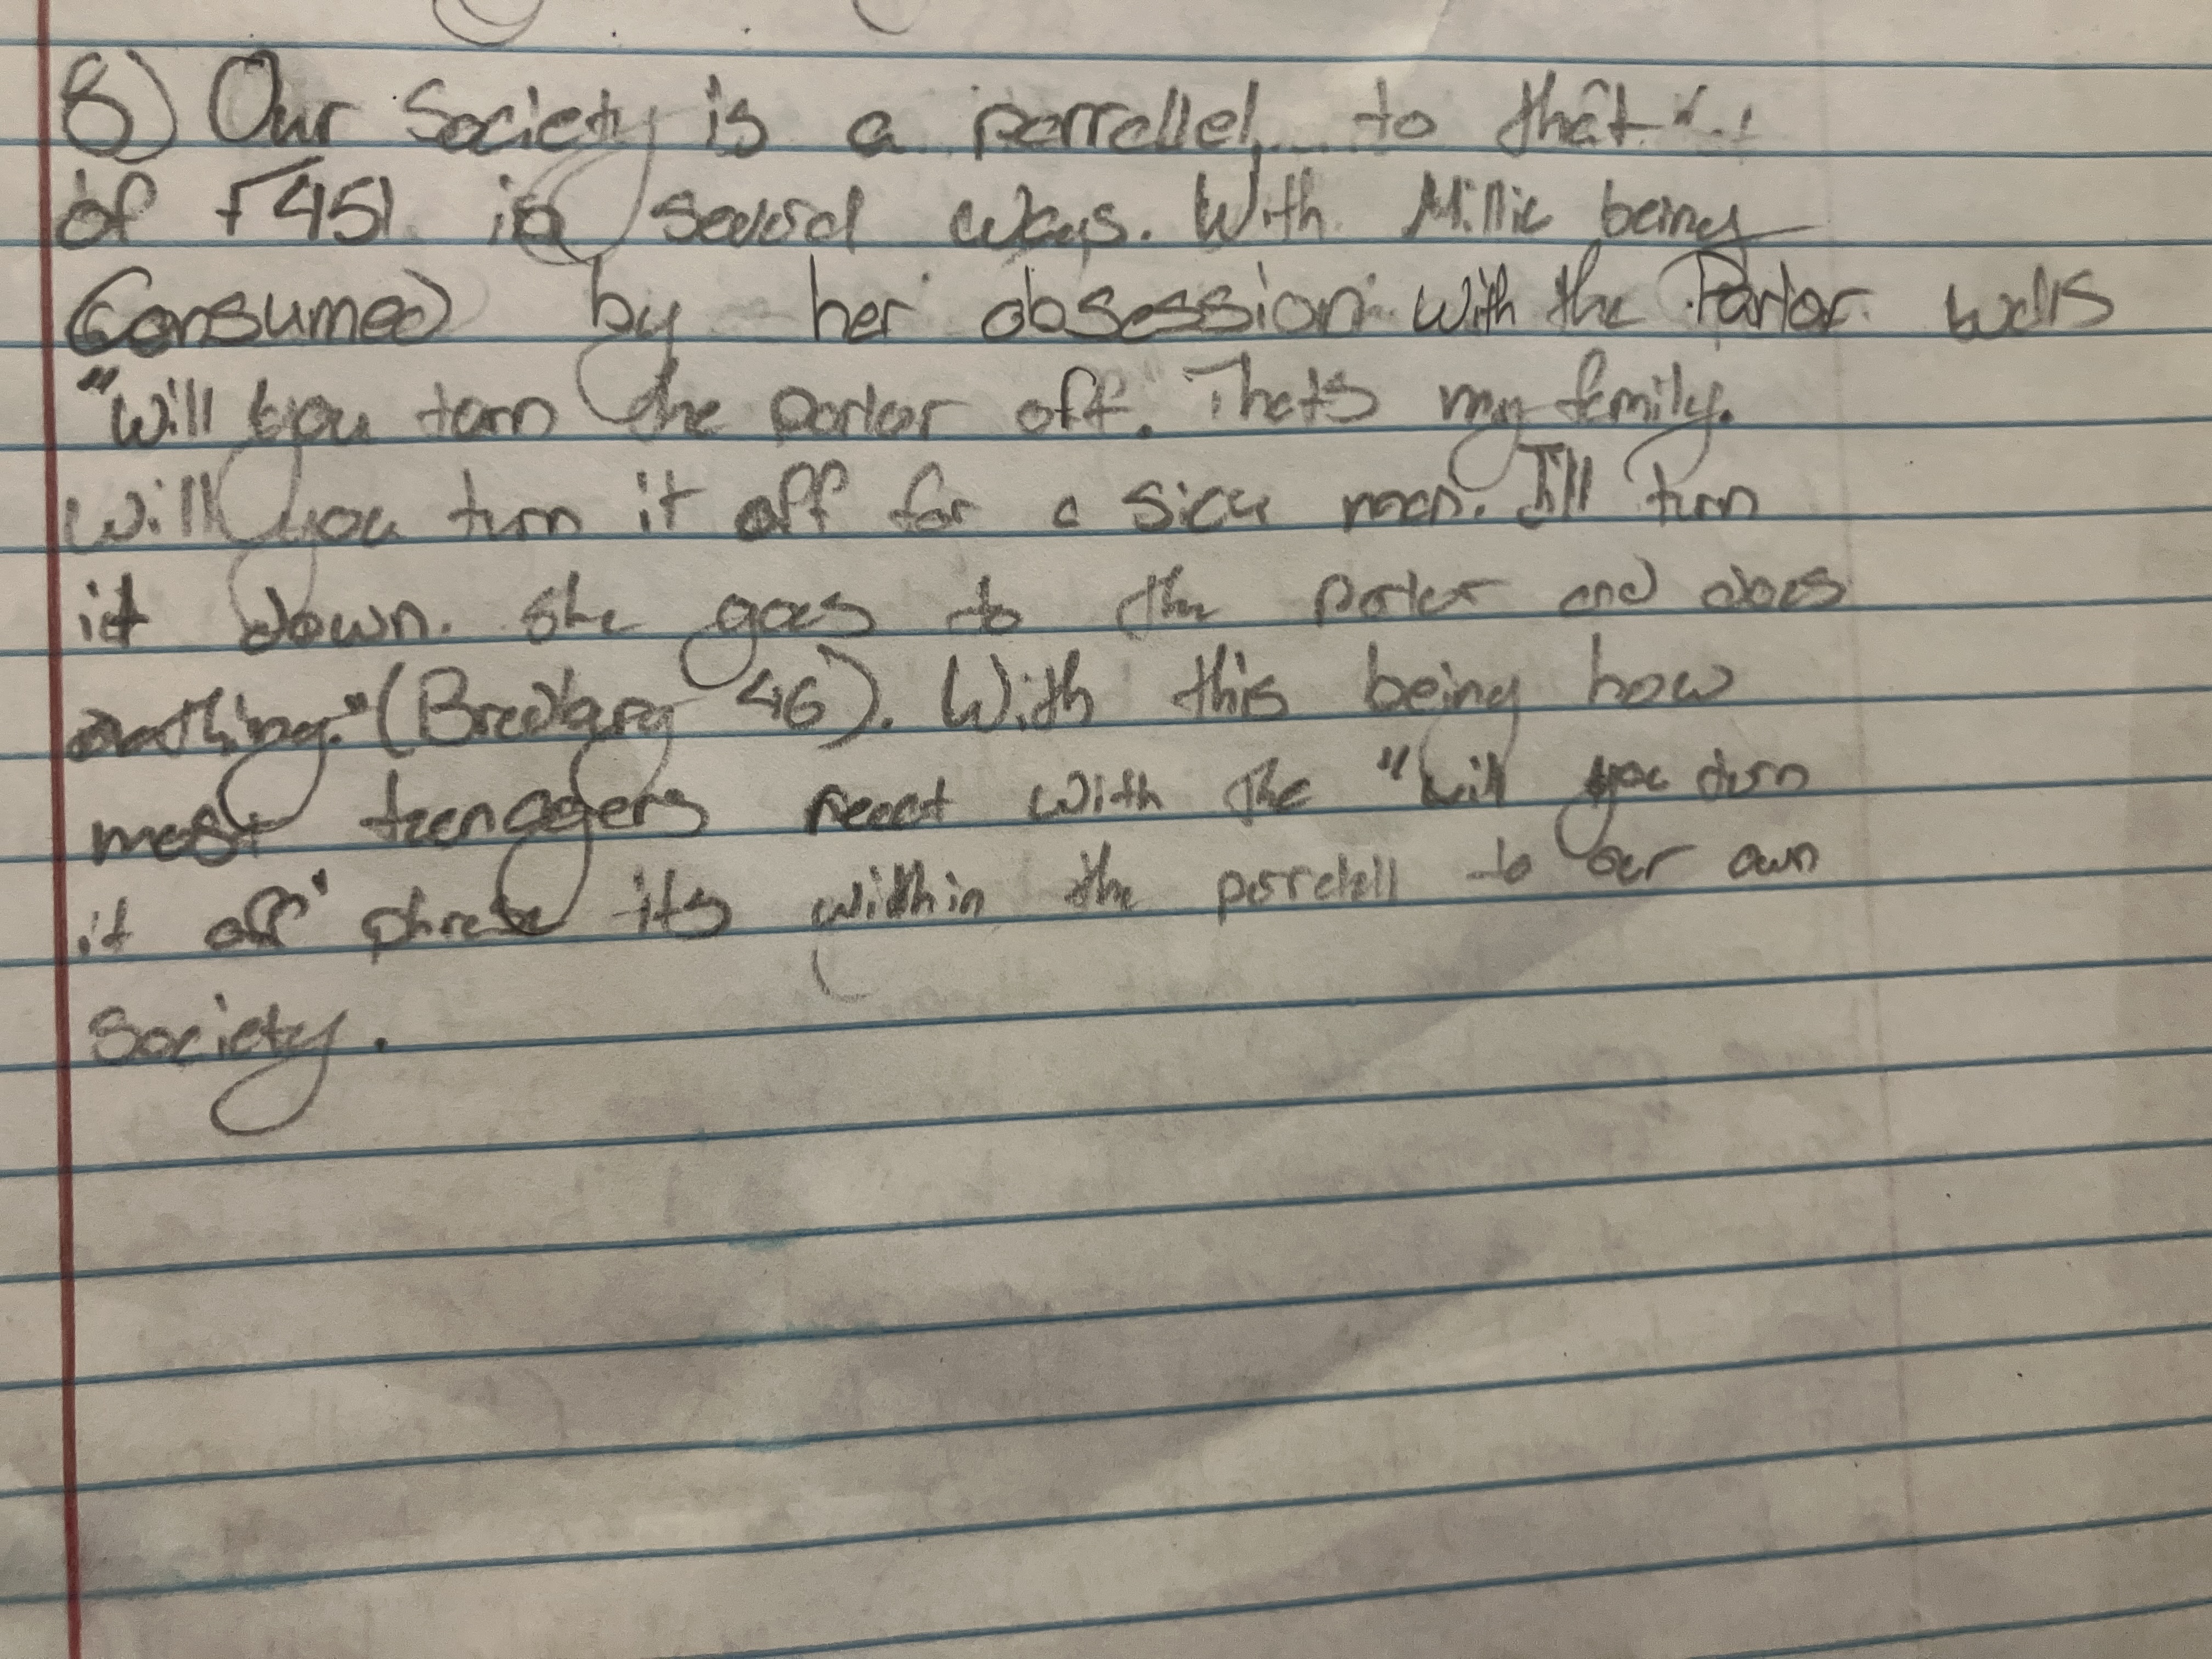 8) Our Society is a parrallel to that
of F451 in several ways. With Millie being
Consumed by her obsession with the Parlor walls
"Will you turn the parlor off." Thats my family.
Will you turn it off for a sick man. I'll turn
it down. She goes to the parlor and does
nothing."(Bradbury 46). With this being how
most teenagers react with the "will you turn
it off" phrase its within the parralell to our own
Society.